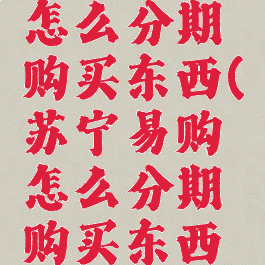 怎么分期
购买东西(
苏宁易购
怎么分期
购买东西